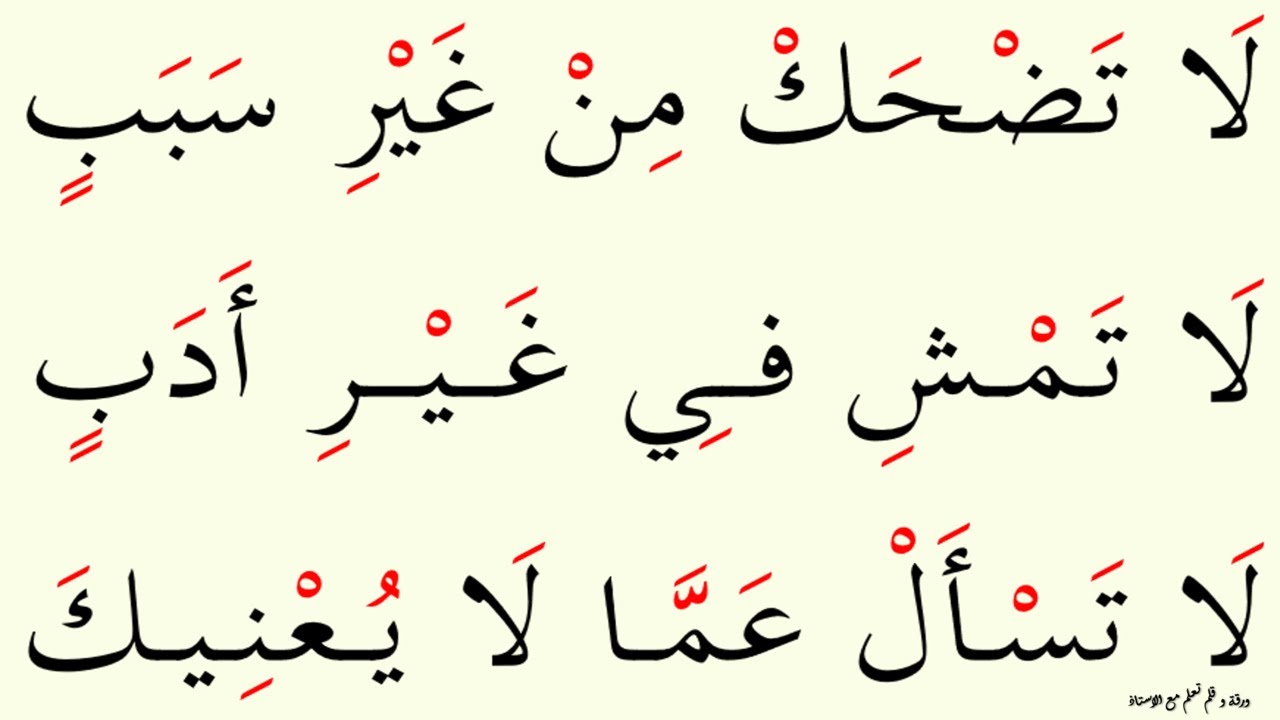 لَا تَضْحَكْ مِنْ غَيْرِ سَبَبٍ
لَا تَمْشِ فِي غَيْرِ أَدَبٍ
لَا تَسْأَلْ عَمَّا لَا يُعْنِيكَ
ورقة و قلم تعلم مع الاستاذ